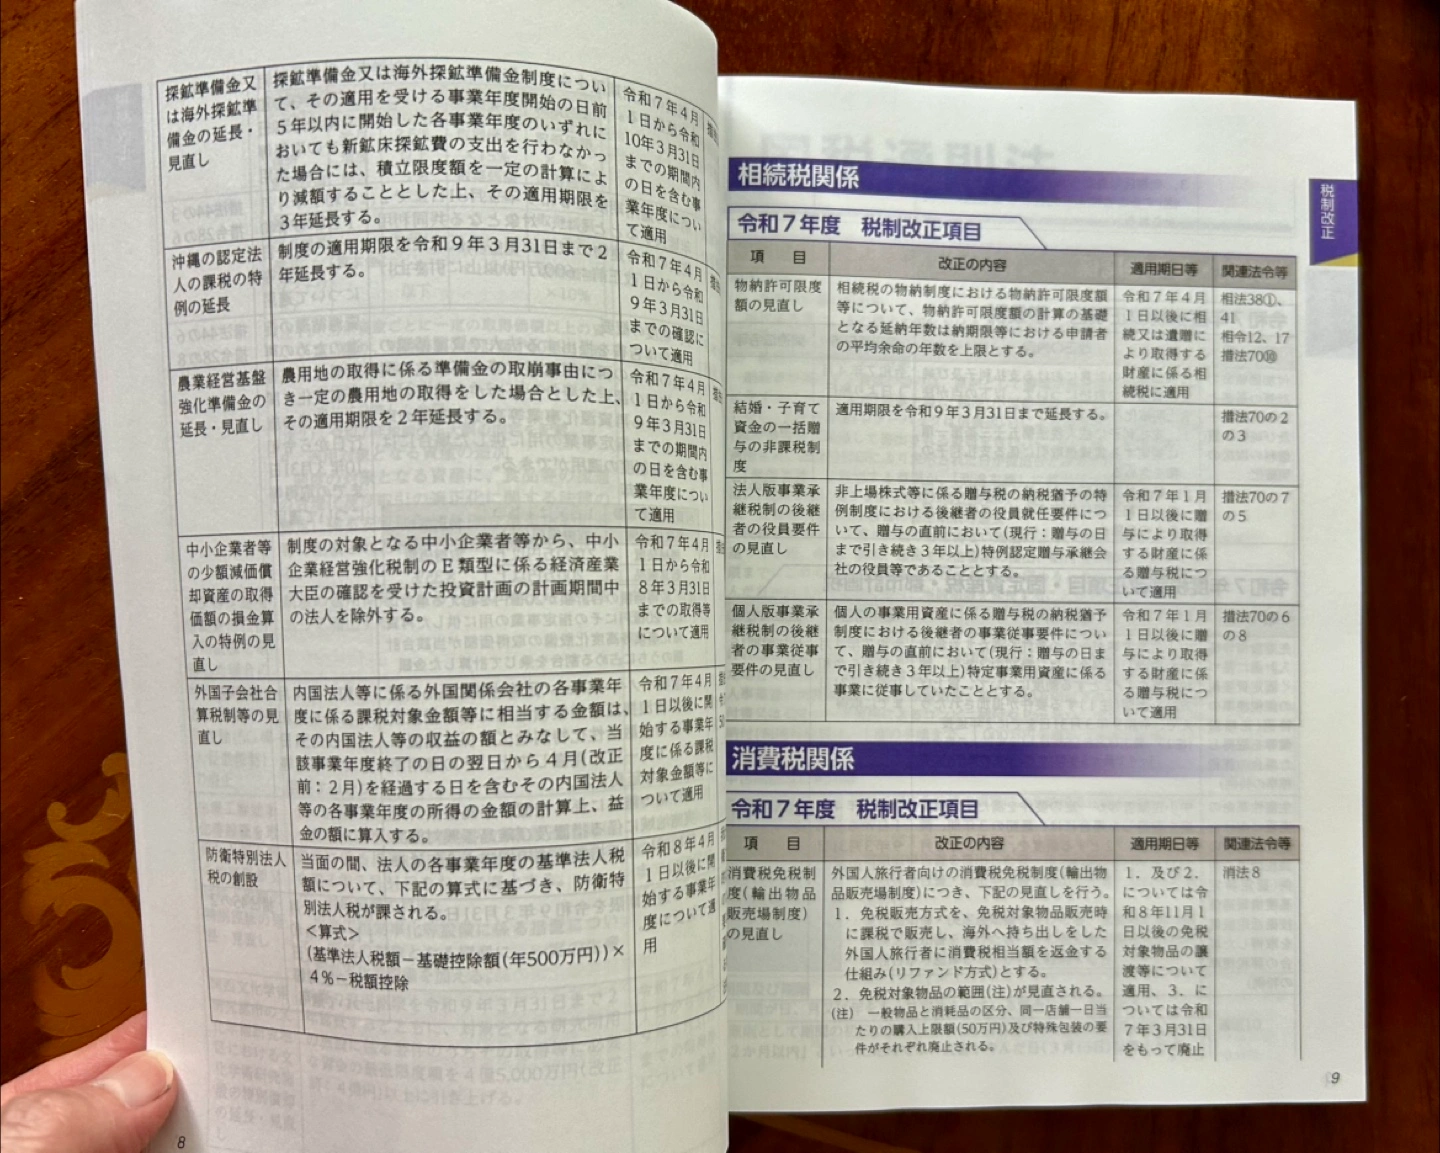 探鉱準備金又
は海外探鉱準
備金の延長・
見直し
探鉱準備金又は海外探鉱準備金制度につい
て、その適用を受ける事業年度開始の日前
5年以内に開始した各事業年度のいずれに
おいても新鉱床探鉱費の支出を行わなかっ
た場合には、積立限度額を一定の計算によ
り減額することとした上、その適用期限を
3年延長する。
令和7年4月
1日から令和
10年3月31日
までの期間内
の日を含む事
業年度につい
て適用
沖縄の認定法
人の課税の特
例の延長
制度の適用期限を令和9年3月31日まで2
年延長する。
令和7年4月
1日から令和
9年3月31日
までの確認に
ついて適用
農業経営基盤
強化準備金の
延長・見直し
農用地の取得に係る準備金の取崩事由につ
き一定の農用地の取得をした場合とした上、
その適用期限を2年延長する。
令和7年4月
1日から令和
9年3月31日
までの期間内
の日を含む事
業年度につい
て適用
中小企業者等
の少額減価償
却資産の取得
価額の損金算
入の特例の見
直し
制度の対象となる中小企業者等から、中小
企業経営強化税制のE類型に係る経済産業
大臣の確認を受けた投資計画の計画期間中
の法人を除外する。
令和7年4月
1日から令和
8年3月31日
までの取得等
について適用
外国子会社合
算税制等の見
直し
内国法人等に係る外国関係会社の各事業年
度に係る課税対象金額等に相当する金額は、
その内国法人等の収益の額とみなして、当
該事業年度終了の日の翌日から4月(改正
前：2月)を経過する日を含むその内国法人
等の各事業年度の所得の金額の計算上、益
金の額に算入する。
令和7年4月
1日以後に開
始する事業年
度に係る課税
対象金額等に
ついて適用
防衛特別法人
税の創設
当面の間、法人の各事業年度の基準法人税
額について、下記の算式に基づき、防衛特
別法人税が課される。
<算式>
(基準法人税額－基礎控除額(年500万円))×
4％－税額控除
令和8年4月
1日以後に開
始する事業年
度について適
用
8
税制改正
相続税関係
令和7年度 税制改正項目
項 目
改正の内容
適用期日等
関連法令等
物納許可限度
額の見直し
相続税の物納制度における物納許可限度額
等について、物納許可限度額の計算の基礎
となる延納年数は納期限等における申請者
の平均余命の年数を上限とする。
令和7年4月
1日以後に相
続又は遺贈に
より取得する
財産に係る相
続税に適用
相法38①、
41
相令12、17
措法70⑩
結婚・子育て
資金の一括贈
与の非課税制
度
適用期限を令和9年3月31日まで延長する。
措法70の2
の3
法人版事業承
継税制の後継
者の役員要件
の見直し
非上場株式等に係る贈与税の納税猶予の特
例制度における後継者の役員就任要件につ
いて、贈与の直前において(現行：贈与の日
まで引き続き3年以上)特例認定贈与承継会
社の役員等であることとする。
令和7年1月
1日以後に贈
与により取得
する財産に係
る贈与税につ
いて適用
措法70の7
の5
個人版事業承
継税制の後継
者の事業従事
要件の見直し
個人の事業用資産に係る贈与税の納税猶予
制度における後継者の事業従事要件につい
て、贈与の直前において(現行：贈与の日ま
で引き続き3年以上)特定事業用資産に係る
事業に従事していたこととする。
令和7年1月
1日以後に贈
与により取得
する財産に係
る贈与税につ
いて適用
措法70の6
の8
消費税関係
令和7年度 税制改正項目
項 目
改正の内容
適用期日等
関連法令等
消費税免税制
度(輸出物品
販売場制度)
の見直し
外国人旅行者向けの消費税免税制度(輸出物
品販売場制度)につき、下記の見直しを行う。
1．免税販売方式を、免税対象物品販売時
に課税で販売し、海外へ持ち出しをした
外国人旅行者に消費税相当額を返金する
仕組み(リファンド方式)とする。
2．免税対象物品の範囲(注)が見直される。
(注) 一般物品と消耗品の区分、同一店舗一日当
たりの購入上限額(50万円)及び特殊包装の要
件がそれぞれ廃止される。
1．及び2．
については令
和8年11月1
日以後の免税
対象物品の譲
渡等について
適用、3．に
ついては令和
7年3月31日
をもって廃止
消法8
9